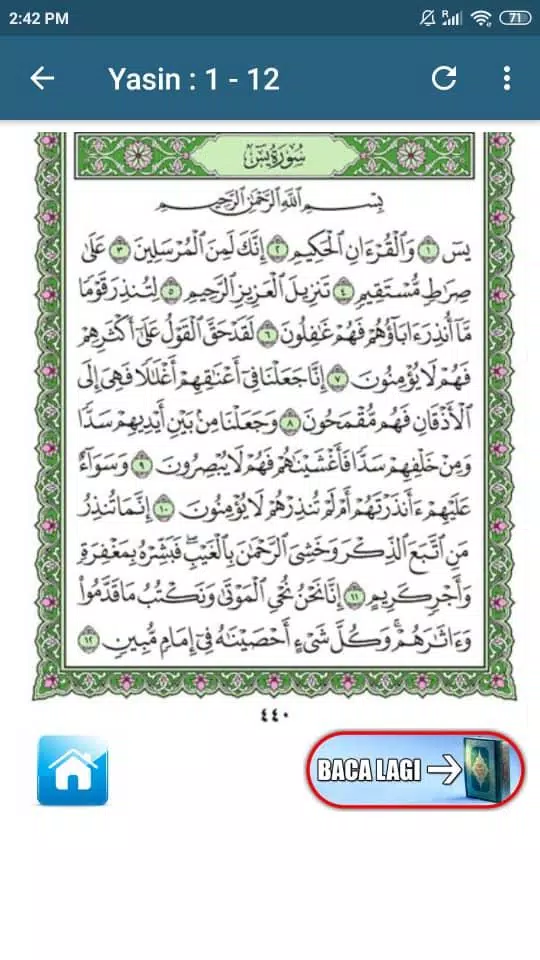 2:42 PM
R
71
Yasin : 1 - 12
سُورَةُ يسٓ
بِسْمِ ٱللَّهِ ٱلرَّحْمَٰنِ ٱلرَّحِيمِ
يسٓ ١ وَٱلْقُرْءَانِ ٱلْحَكِيمِ ٢ إِنَّكَ لَمِنَ ٱلْمُرْسَلِينَ ٣ عَلَىٰ
صِرَٰطٍ مُّسْتَقِيمٍ ٤ تَنزِيلَ ٱلْعَزِيزِ ٱلرَّحِيمِ ٥ لِتُنذِرَ قَوْمًا
مَّآ أُنذِرَ ءَابَآؤُهُمْ فَهُمْ غَٰفِلُونَ ٦ لَقَدْ حَقَّ ٱلْقَوْلُ عَلَىٰٓ أَكْثَرِهِمْ
فَهُمْ لَا يُؤْمِنُونَ ٧ إِنَّا جَعَلْنَا فِىٓ أَعْنَٰقِهِمْ أَغْلَٰلًا فَهِىَ إِلَى
ٱلْأَذْقَانِ فَهُم مُّقْمَحُونَ ٨ وَجَعَلْنَا مِنۢ بَيْنِ أَيْدِيهِمْ سَدًّا
وَمِنْ خَلْفِهِمْ سَدًّا فَأَغْشَيْنَٰهُمْ فَهُمْ لَا يُبْصِرُونَ ٩ وَسَوَآءٌ
عَلَيْهِمْ ءَأَنذَرْتَهُمْ أَمْ لَمْ تُنذِرْهُمْ لَا يُؤْمِنُونَ ١٠ إِنَّمَا تُنذِرُ
مَنِ ٱتَّبَعَ ٱلذِّكْرَ وَخَشِىَ ٱلرَّحْمَٰنَ بِٱلْغَيْبِ ۖ فَبَشِّرْهُ بِمَغْفِرَةٍ
وَأَجْرٍ كَرِيمٍ ١١ إِنَّا نَحْنُ نُحْىِ ٱلْمَوْتَىٰ وَنَكْتُبُ مَا قَدَّمُوا۟
وَءَاثَٰرَهُمْ ۚ وَكُلَّ شَىْءٍ أَحْصَيْنَٰهُ فِىٓ إِمَامٍ مُّبِينٍ ١٢
٤٤٠
BACA LAGI